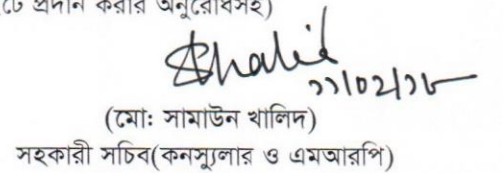 প্রদান করার অনুরোধসহ)
Khalid
১১/০২/১৮
(মো: সামাউন খালিদ)
সহকারী সচিব(কনস্যুলার ও এমআরপি)